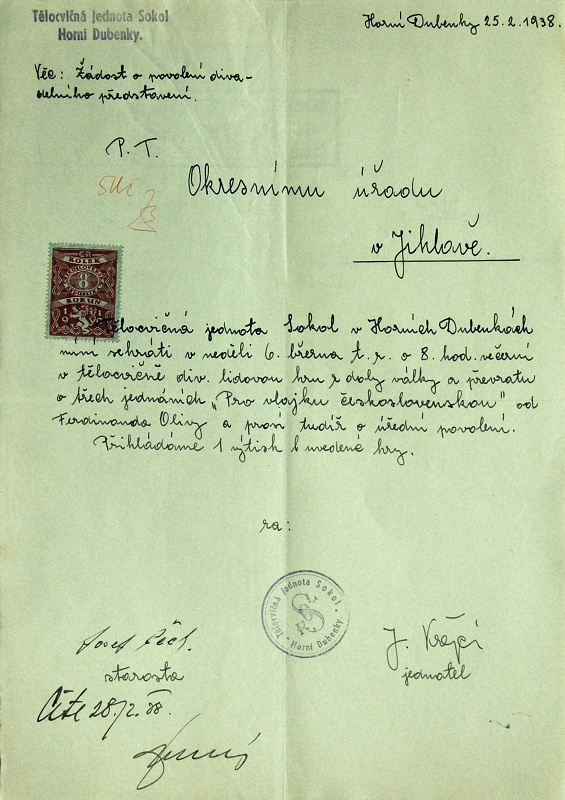 Tělocvičná Jednota Sokol
Horní Dubenky.
Horní Dubenky 25.2.1938.
Věc: Žádost o povolení diva-
delního představení.
P. T.
Okresnímu úřadu
v Jihlavě.
KOLEK
8
KORUN
Tělocvičná jednota Sokol v Horních Dubenkách
míní sehráti v neděli 6. března t. r. o 8. hod. večerní
v tělocvičně div. lidovou hru z doby války a převratu
o třech jednáních „Pro vlajku československou" od
Ferdinanda Olivy a prosí tudíž o úřední povolení.
Přikládáme 1 výtisk k uvedené hry.
za:
Tělocvičná Jednota Sokol
Horní Dubenky.
Josef
J. Krejčí
starosta
jednatel
28/2.